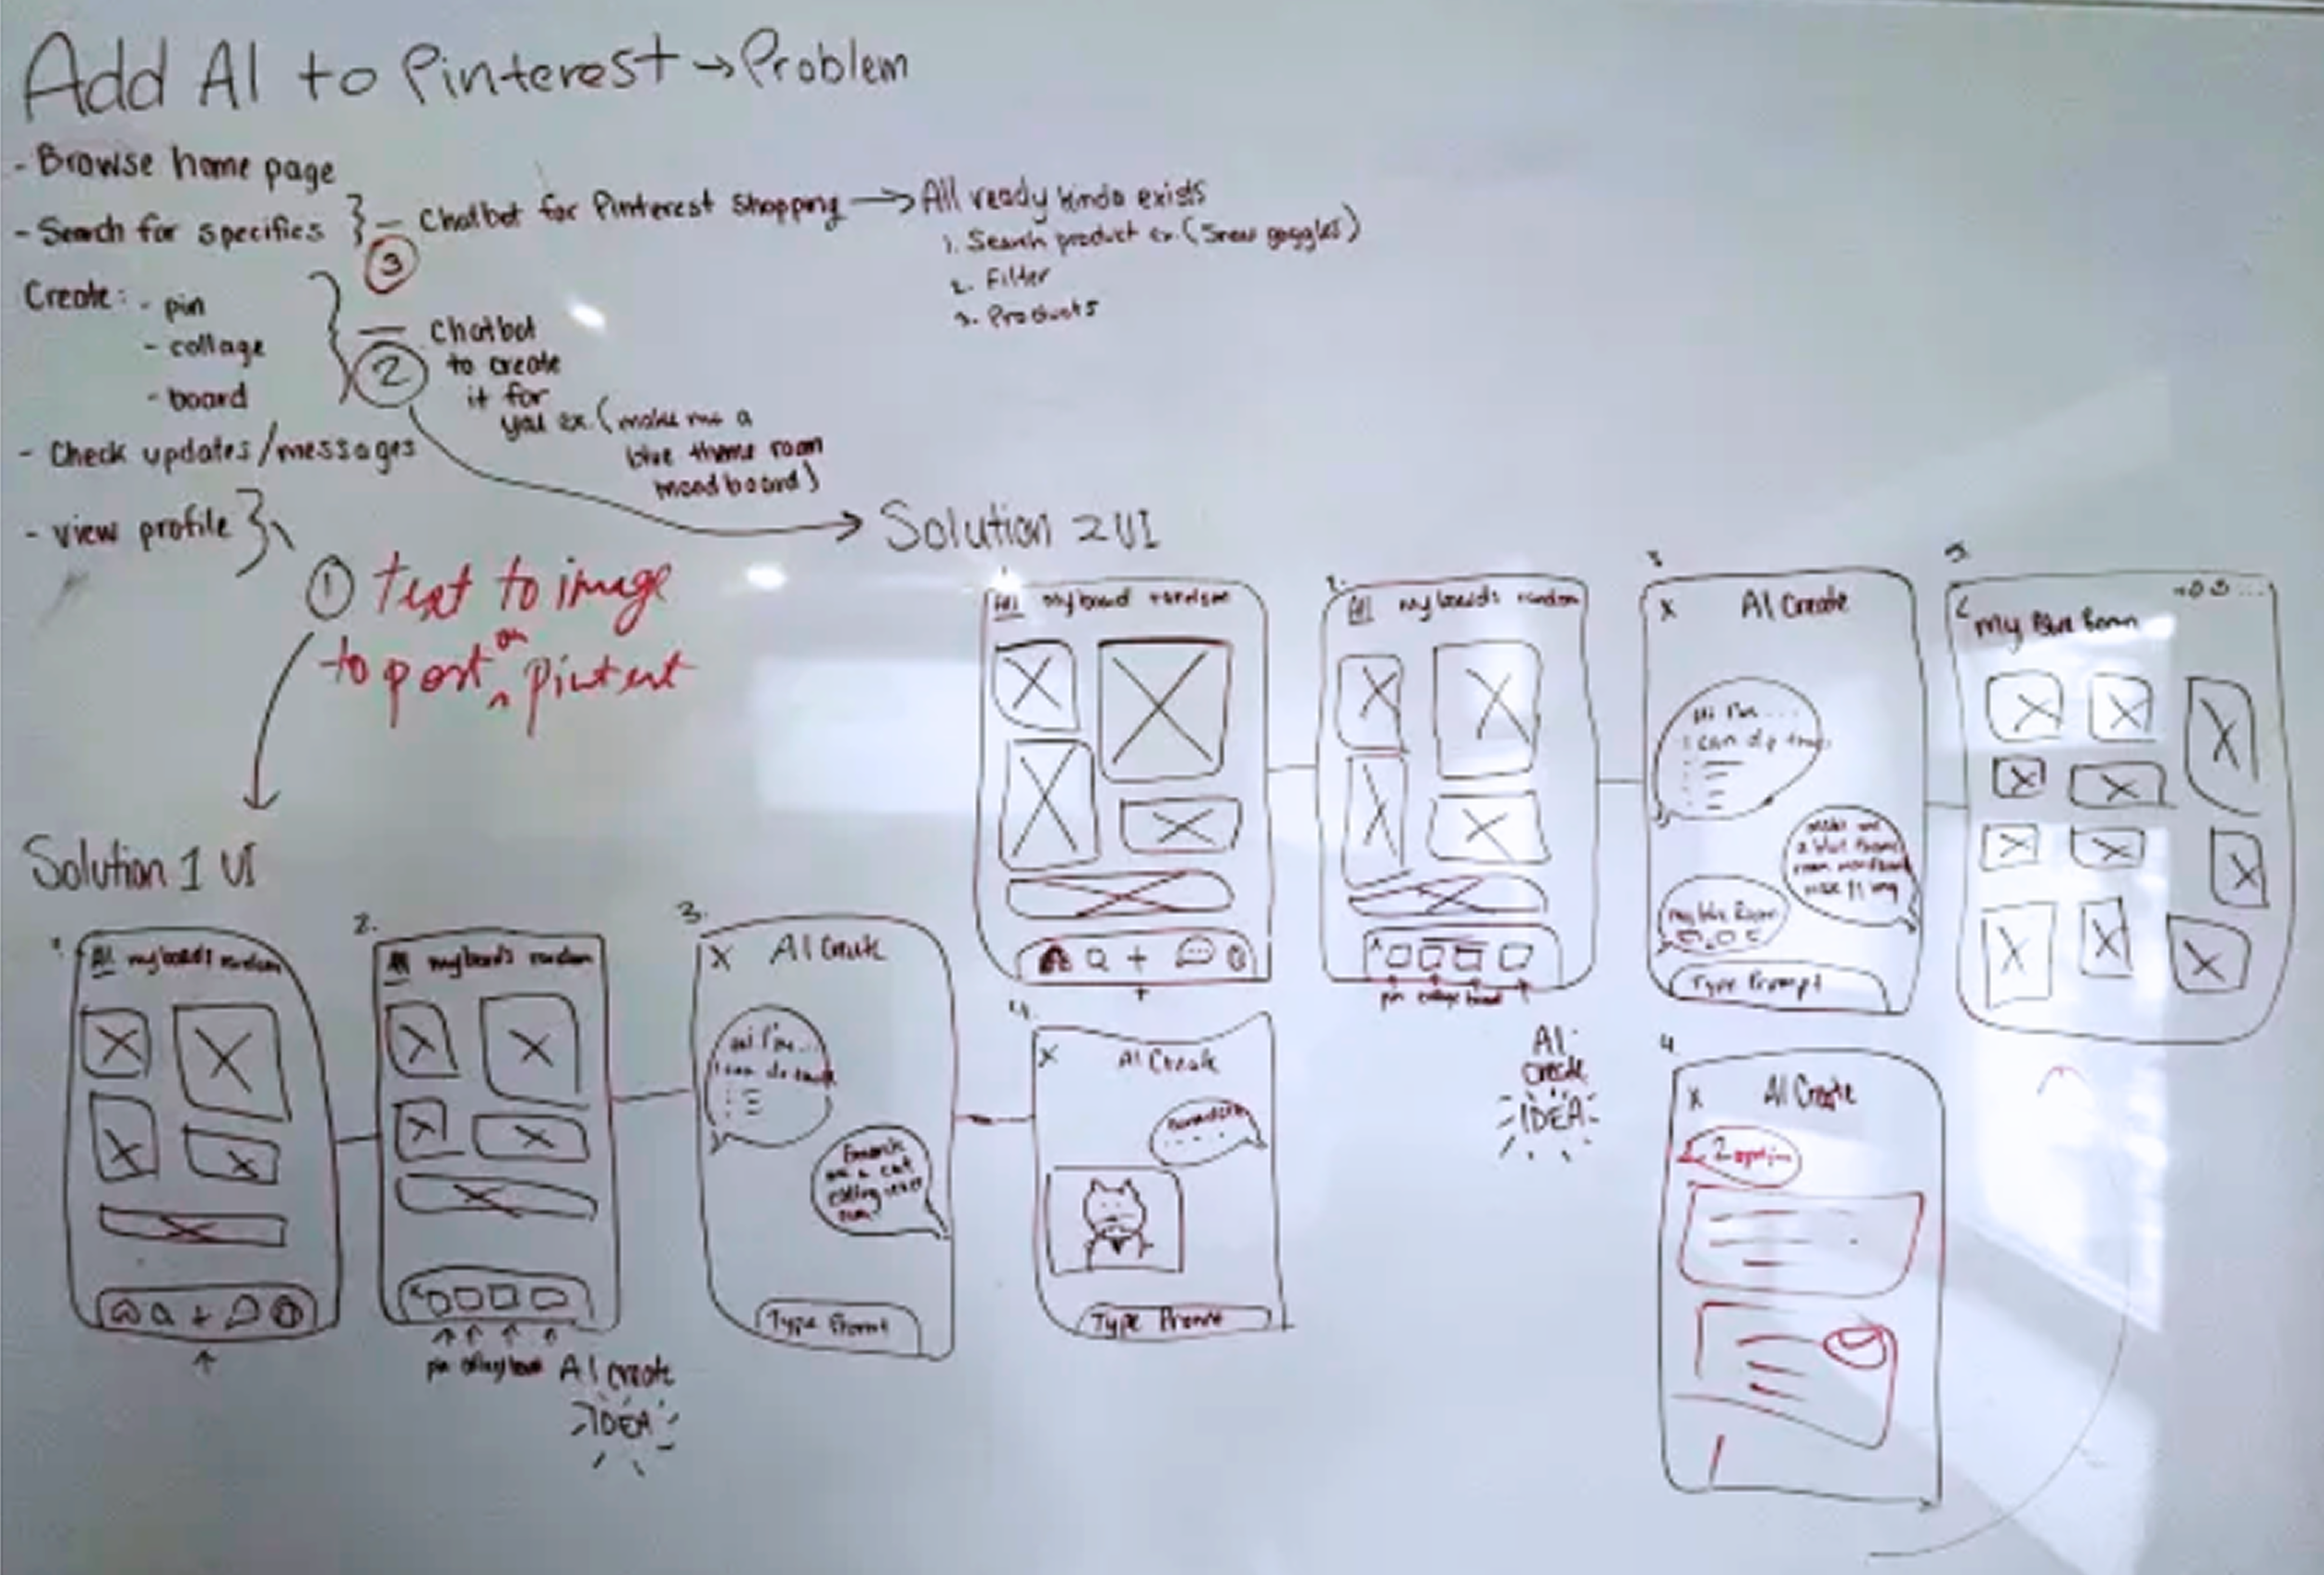 Add AI to Pinterest → Problem
- Browse home page
- Search for specifics
3
- Chatbot for Pinterest Shopping → All ready kinda exists
1. Search product ex. (Snow goggles)
2. Filter
3. Products
Create: - pin
- collage
- board
2
- Chatbot
to create
it for
you ex. (make me a
blue theme room
mood board)
- Check updates/messages
- view profile
1 text to image
to post on pinterest
Solution 2 UI
1.
All my board random
2.
All my boards random
3
X AI Create
Hi I'm ...
I can do
make me
a blue theme
room moodboard
my blue Room
Type Prompt
5.
My Blue Room
pin collage board
AI
create
IDEA
4.
X AI Create
2 options
Solution 1 UI
1.
All my boards random
2.
All my boards random
pin collage board AI create
IDEA
3.
X AI Create
Hi I'm ...
I can do
me a cat
Type Prompt
4.
X AI Create
Type Prompt